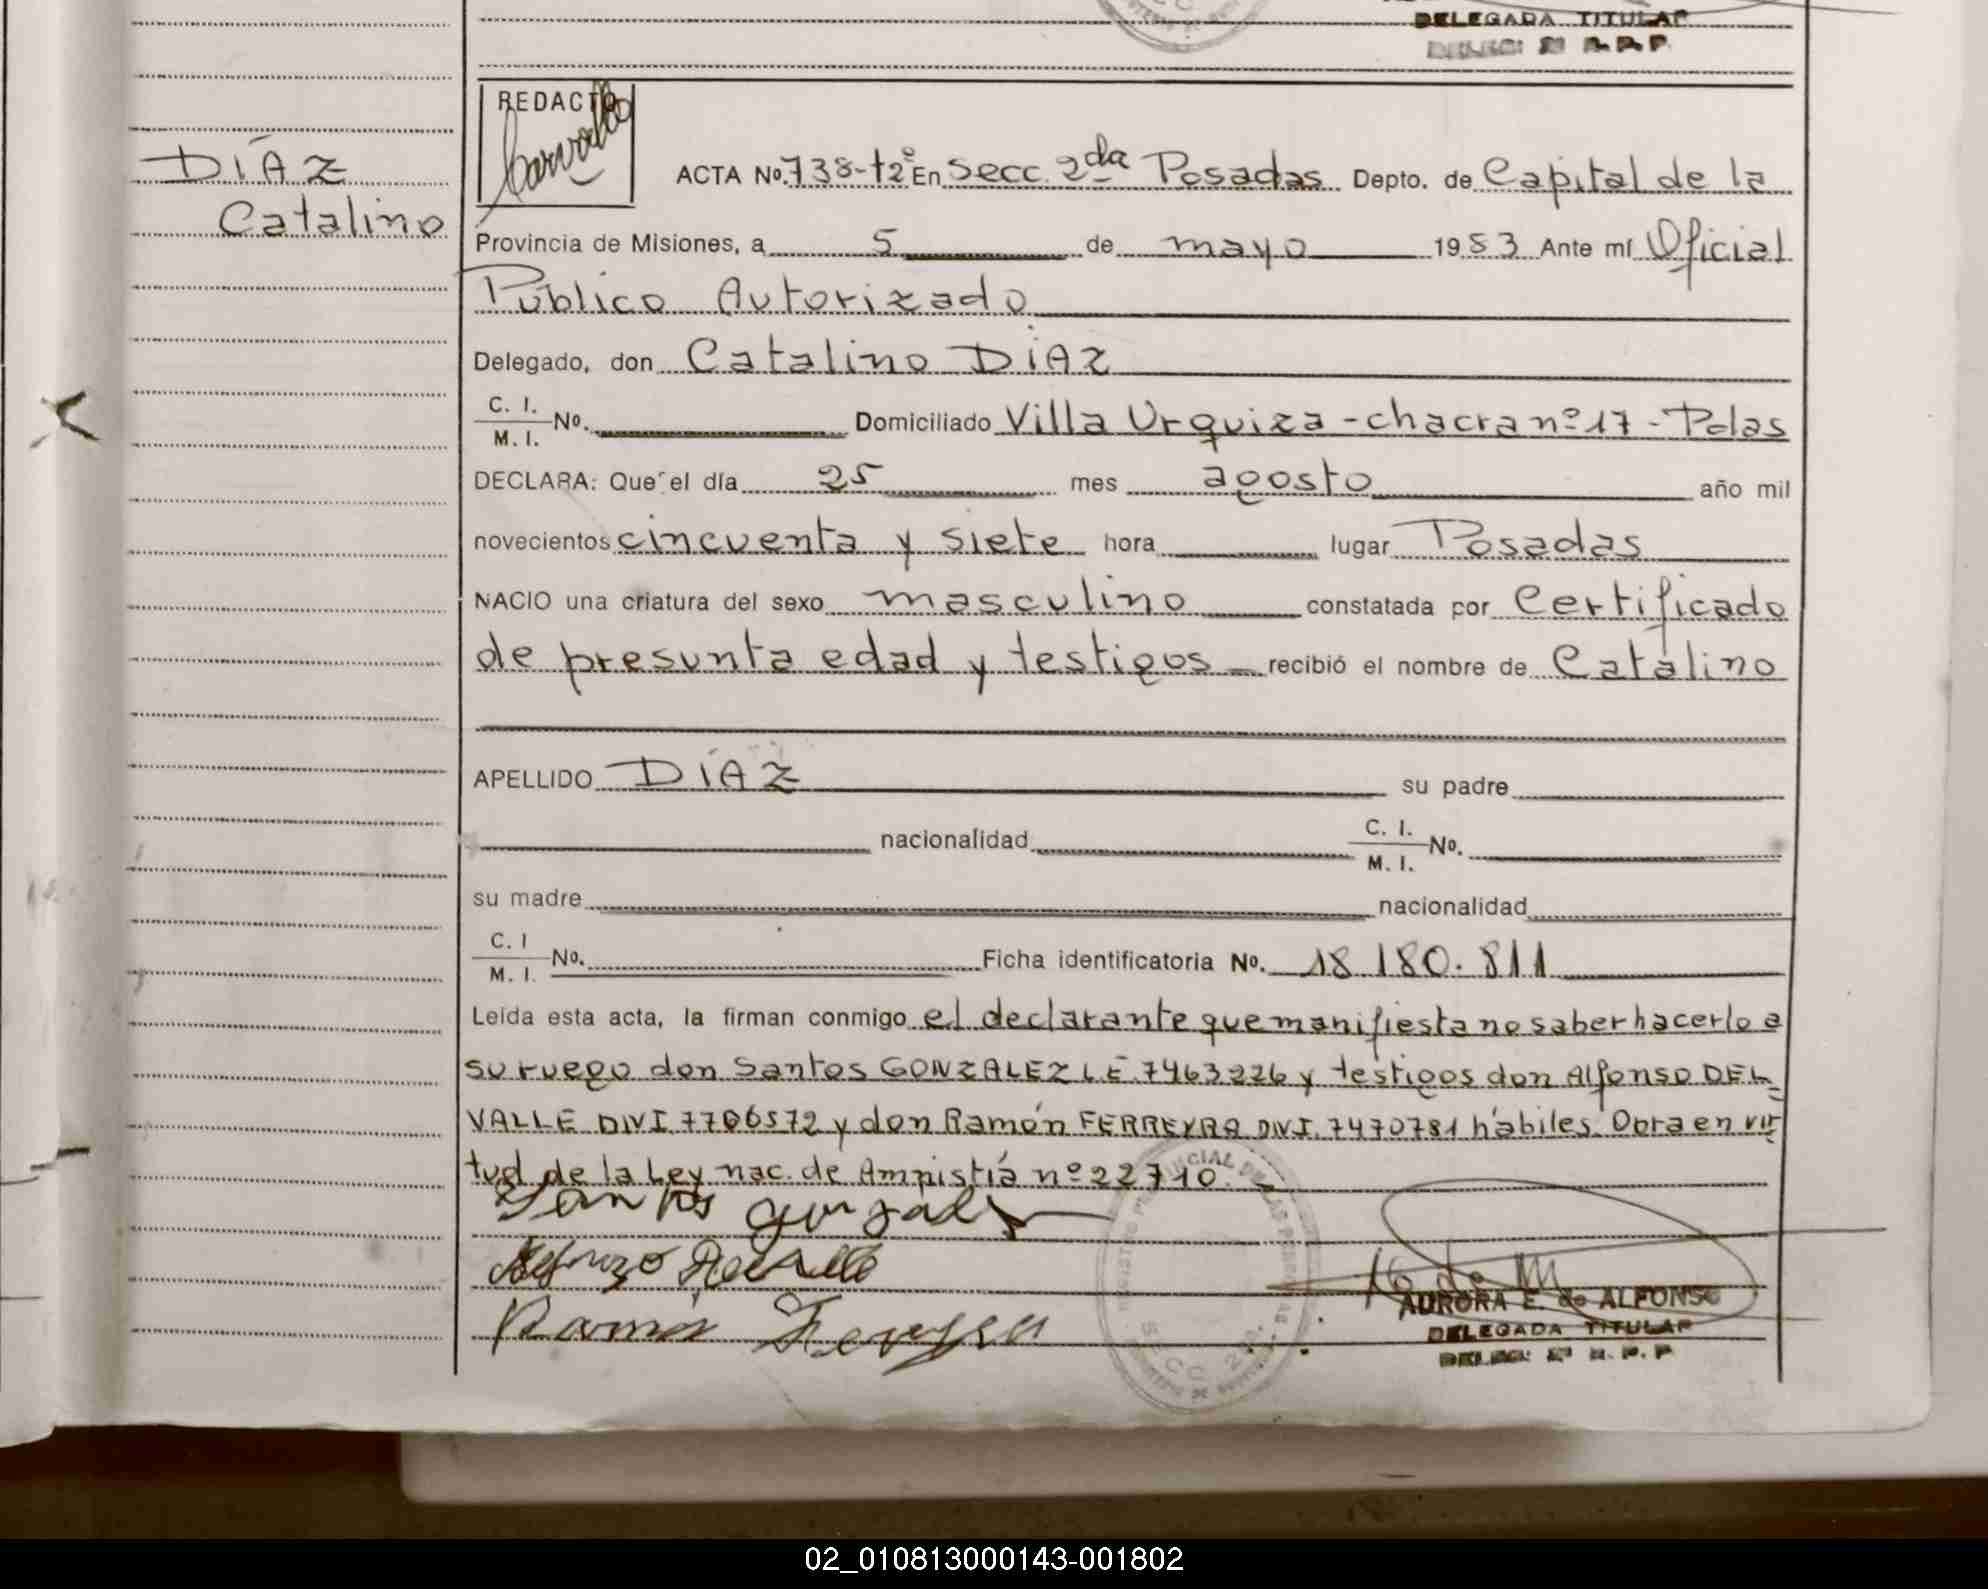 DELEGADA TITULAR
REDACTO
Carvallo
DÍAZ
Catalino
ACTA No. 738-tº2º En Secc. 2da Posadas Depto. de Capital de la
Provincia de Misiones, a 5 de mayo 1983 Ante mí Oficial
Público Autorizado
Delegado, don Catalino DíAZ
C. I.
M. I. No. Domiciliado Villa Urquiza - chacra nº 17 - Pdas
DECLARA: Que el día 25 mes agosto año mil
novecientos cincuenta y siete hora lugar Posadas
NACIO una criatura del sexo masculino constatada por Certificado
de presunta edad y testigos recibió el nombre de Catalino
APELLIDO DíAZ su padre
nacionalidad C. I.
M. I. No.
su madre nacionalidad
C. I
M. I. No. Ficha identificatoria No. 18.180.811
Leída esta acta, la firman conmigo el declarante que manifiesta no saber hacerlo a
su ruego don Santos GONZALEZ L.E. 7463226 y testigos don Alfonso DEL
VALLE DNI 7706572 y don Ramón FERREYRA DNI. 7470781 hábiles. Obra en vir
tud de la Ley nac. de Amnistía nº 22710.
Santos Gonzalez
Ramon Ferreyra
AURORA E. de ALFONSO
DELEGADA TITULAR
02_010813000143-001802